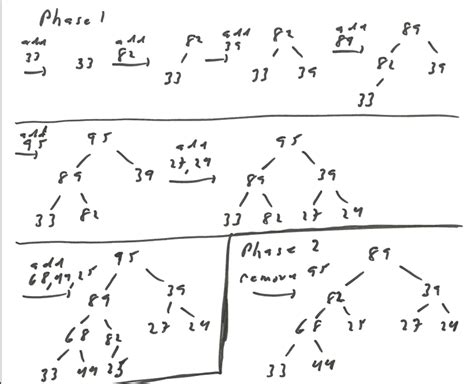 Phase 1
add
33
33
add
82
82
33
add
39
82
33 39
add
89
89
82 39
33
add
95
95
89 39
33 82
add
27, 24
95
89 39
33 82 27 24
add
68, 44, 25
95
89 39
68 82 27 24
33 44 25
Phase 2
remove 95
89
82 39
68 25 27 24
33 44